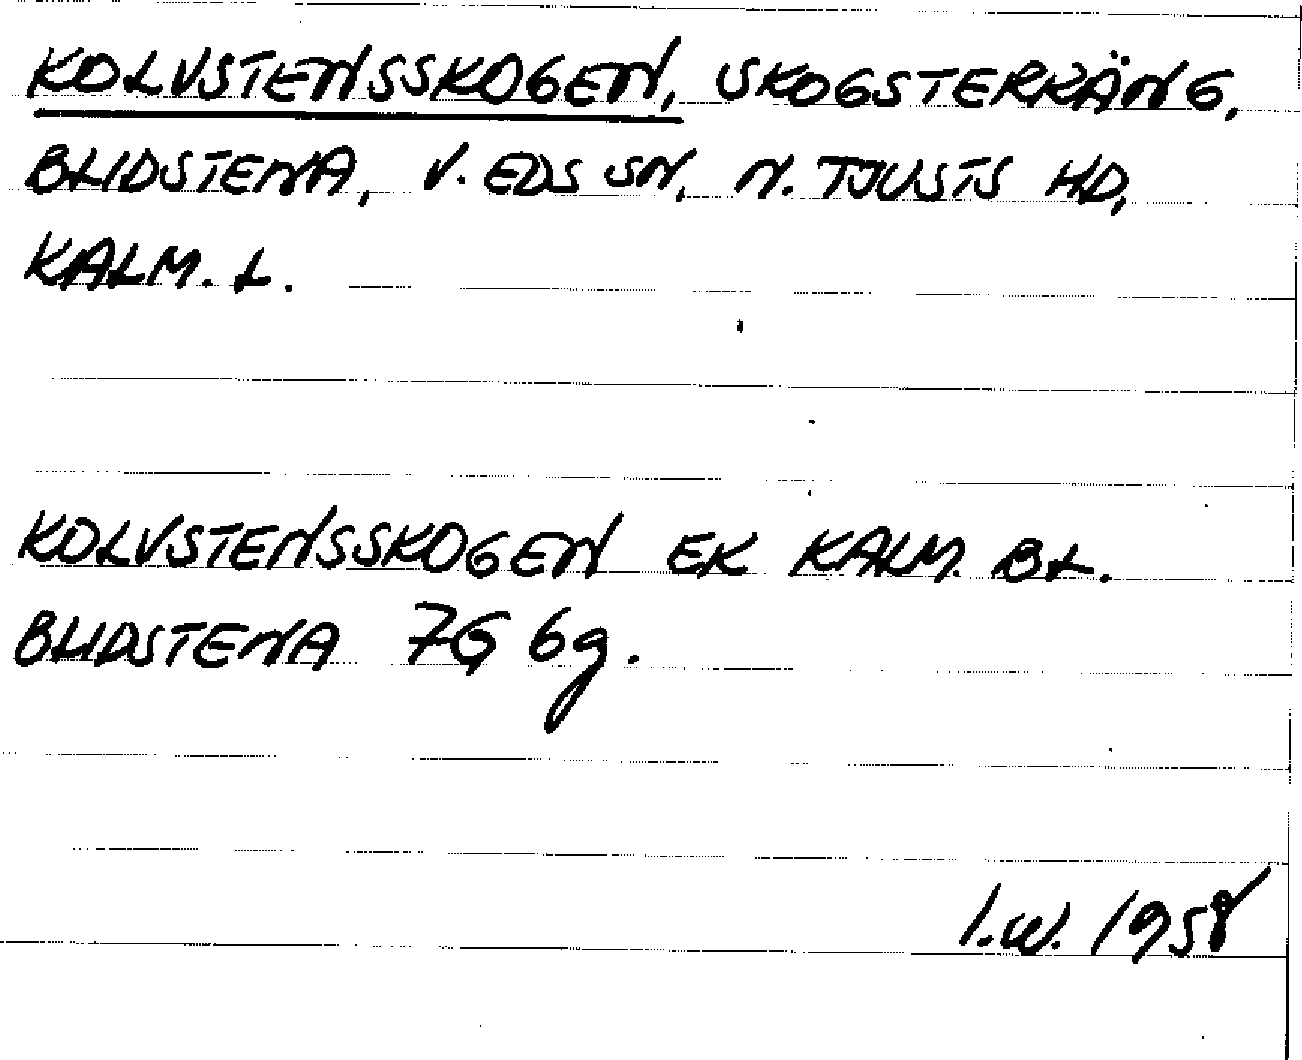 KOLVSTENSSKOGEN, SKOGSTERRÄNG,
BLIDSTENA, V. EDS SN, N. TJUSTS HD,
KALM. L.
KOLVSTENSSKOGEN EK KALM. BL.
BLIDSTENA 7G 6g.
I.W. 1958